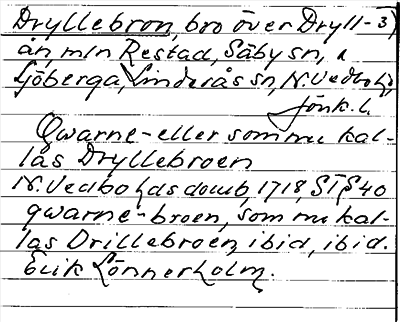 Dryllebron, bro över Dryll- 3)
ån, mln Restad, Säby sn, &
Sjöberga, Linderås sn, N. Vedbo hd,
Jönk. l.
Qwarne- eller som nu kal-
las Dryllebroen
N. Vedbo hds domb, 1718, S 40
qwarne-broen, som nu kal-
las Drillebroen, ibid, ibid.
Erik Lönnerholm.